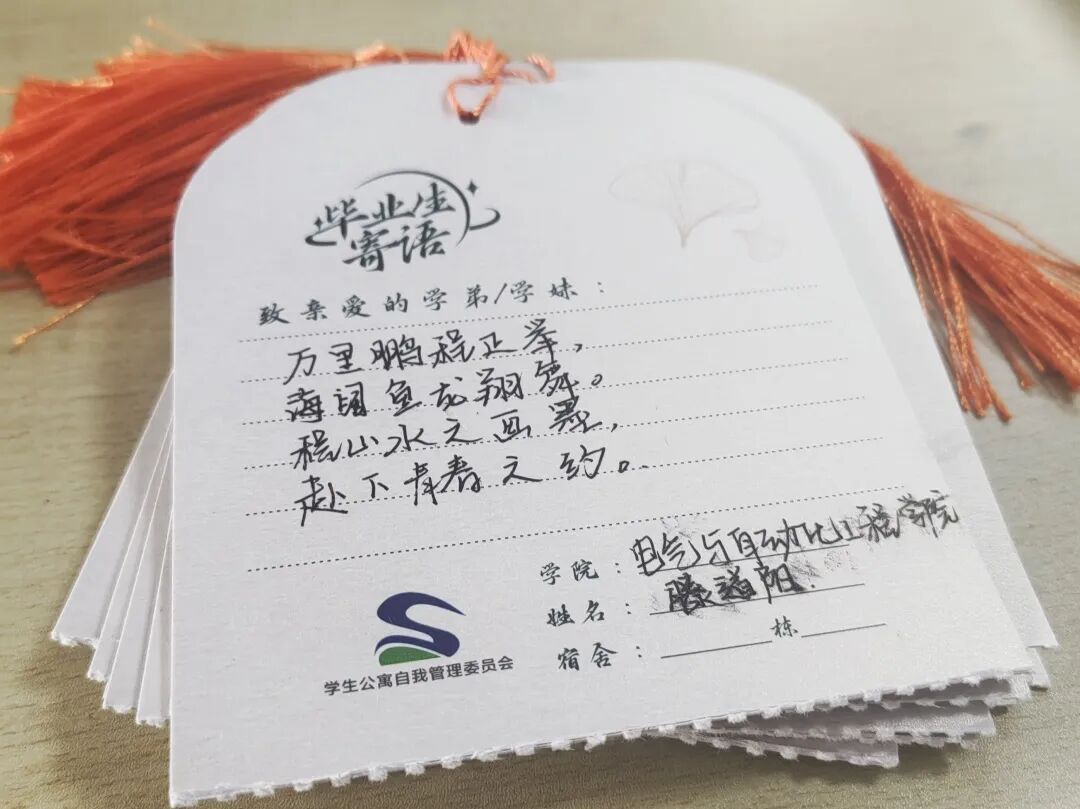 毕业生
寄语
致亲爱的学弟/学妹：
万里鹏程正举，
海阔鱼龙翔舞。
山水之画墨，
赴下青春之约。
学院：电气与自动化工程学院
姓名：滕道阳
宿舍：栋
学生公寓自我管理委员会